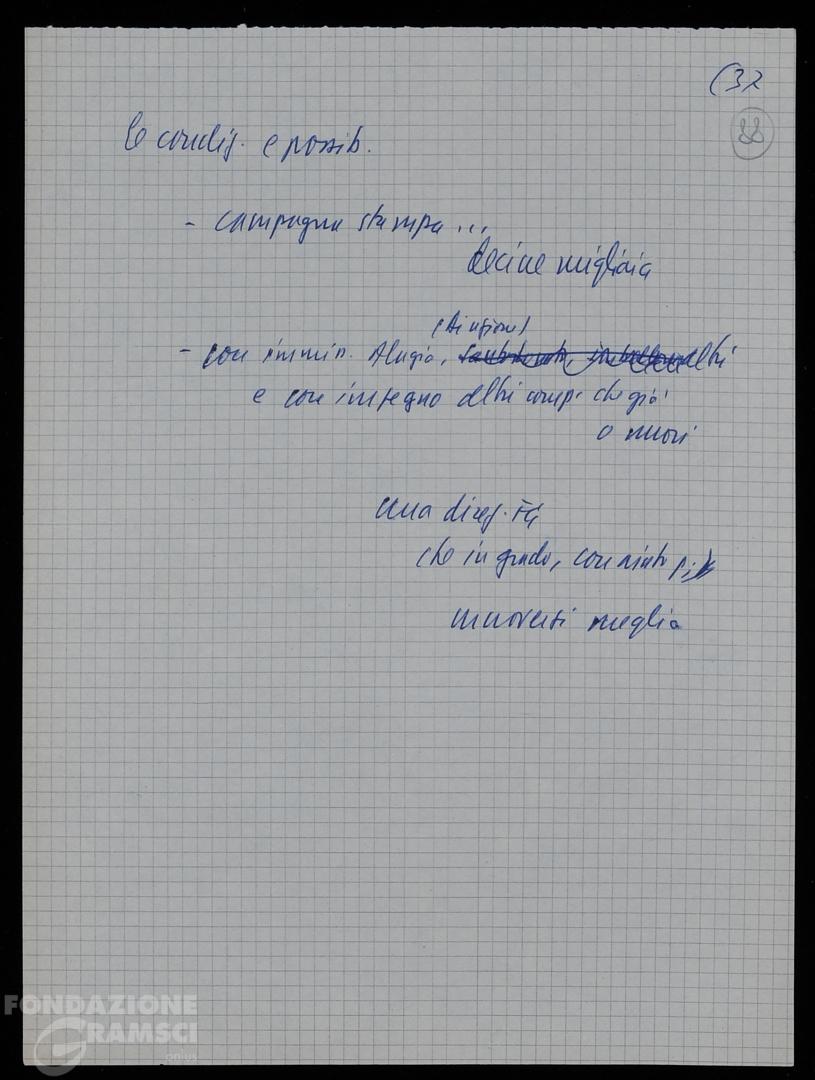 (32
88
le condiz. e possib.
- campagna stampa ...
decine migliaia
- con immin. Alagia, altri
e con impegno altri comp. che già
o nuovi
una direz. Fed
che in grado, con aiuto
muoversi meglio
FONDAZIONE
GRAMSCI
onlus